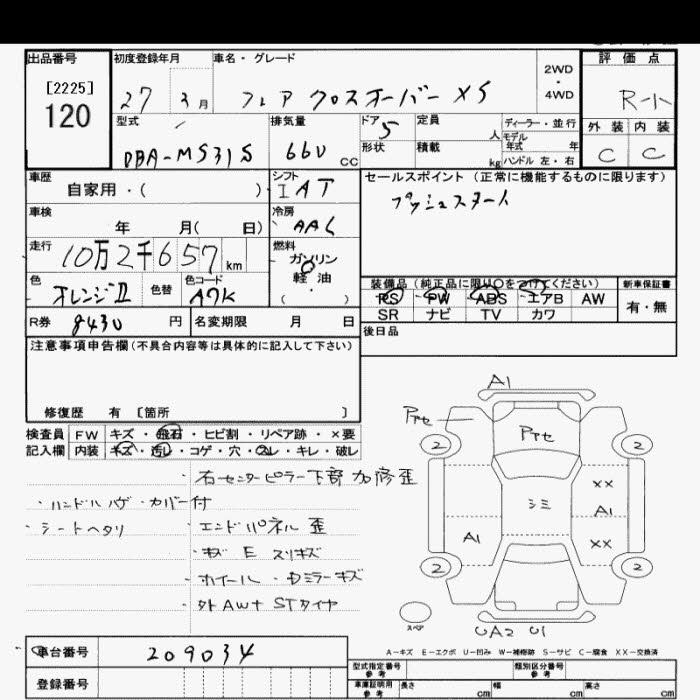 出品番号
[2225]
120
初度登録年月
27 3月
車名・グレード
フレア クロスオーバー XS
2WD
・
4WD
評価点
R-小
外装 内装
C C
型式
DBA-MS31S
排気量
660 cc
ドア 5
形状
定員 人
積載 kg
ディーラー・並行
モデル
年式 年
ハンドル 左・右
車歴
自家用・( )
シフト
IAT
セールスポイント(正常に機能するものに限ります)
プッシュスタート
車検
年 月( 日)
冷房
AAC
走行
10万2千657 km
燃料
ガソリン
軽油
・
( )
色
オレンジII
色替
色コード
A7K
装備品(純正品に限り○をつけてください)
PS PW ABS エアB AW
SR ナビ TV カワ
新車保証書
有・無
R券
8430 円
名変期限 月 日
後日品
注意事項申告欄(不具合内容等は具体的に記入して下さい)
修復歴 有 [箇所 ]
検査員
記入欄
FW キズ・飛石・ヒビ割・リペア跡・×要
内装 キズ・汚レ・コゲ・穴・スレ・キレ・破レ
右センターピラー下部加修歪
・ハンドルハゲ・カバー付
・シートヘタリ
・エンドパネル歪
・キズ E スリキズ
・ホイール・Dミラーキズ
・外AW+STタイヤ
A1
Pケセ
Pケセ
2 2
シミ
XX
A1
A1
XX
2 2
スペア
UA2 U1
A−キズ E−エクボ U−凹み W−補修跡 S−サビ C−腐食 XX−交換済
車台番号
209034
登録番号
型式指定番号
参考
類別区分番号
参考
車庫証明用
参考
長さ cm
幅 cm
高さ cm